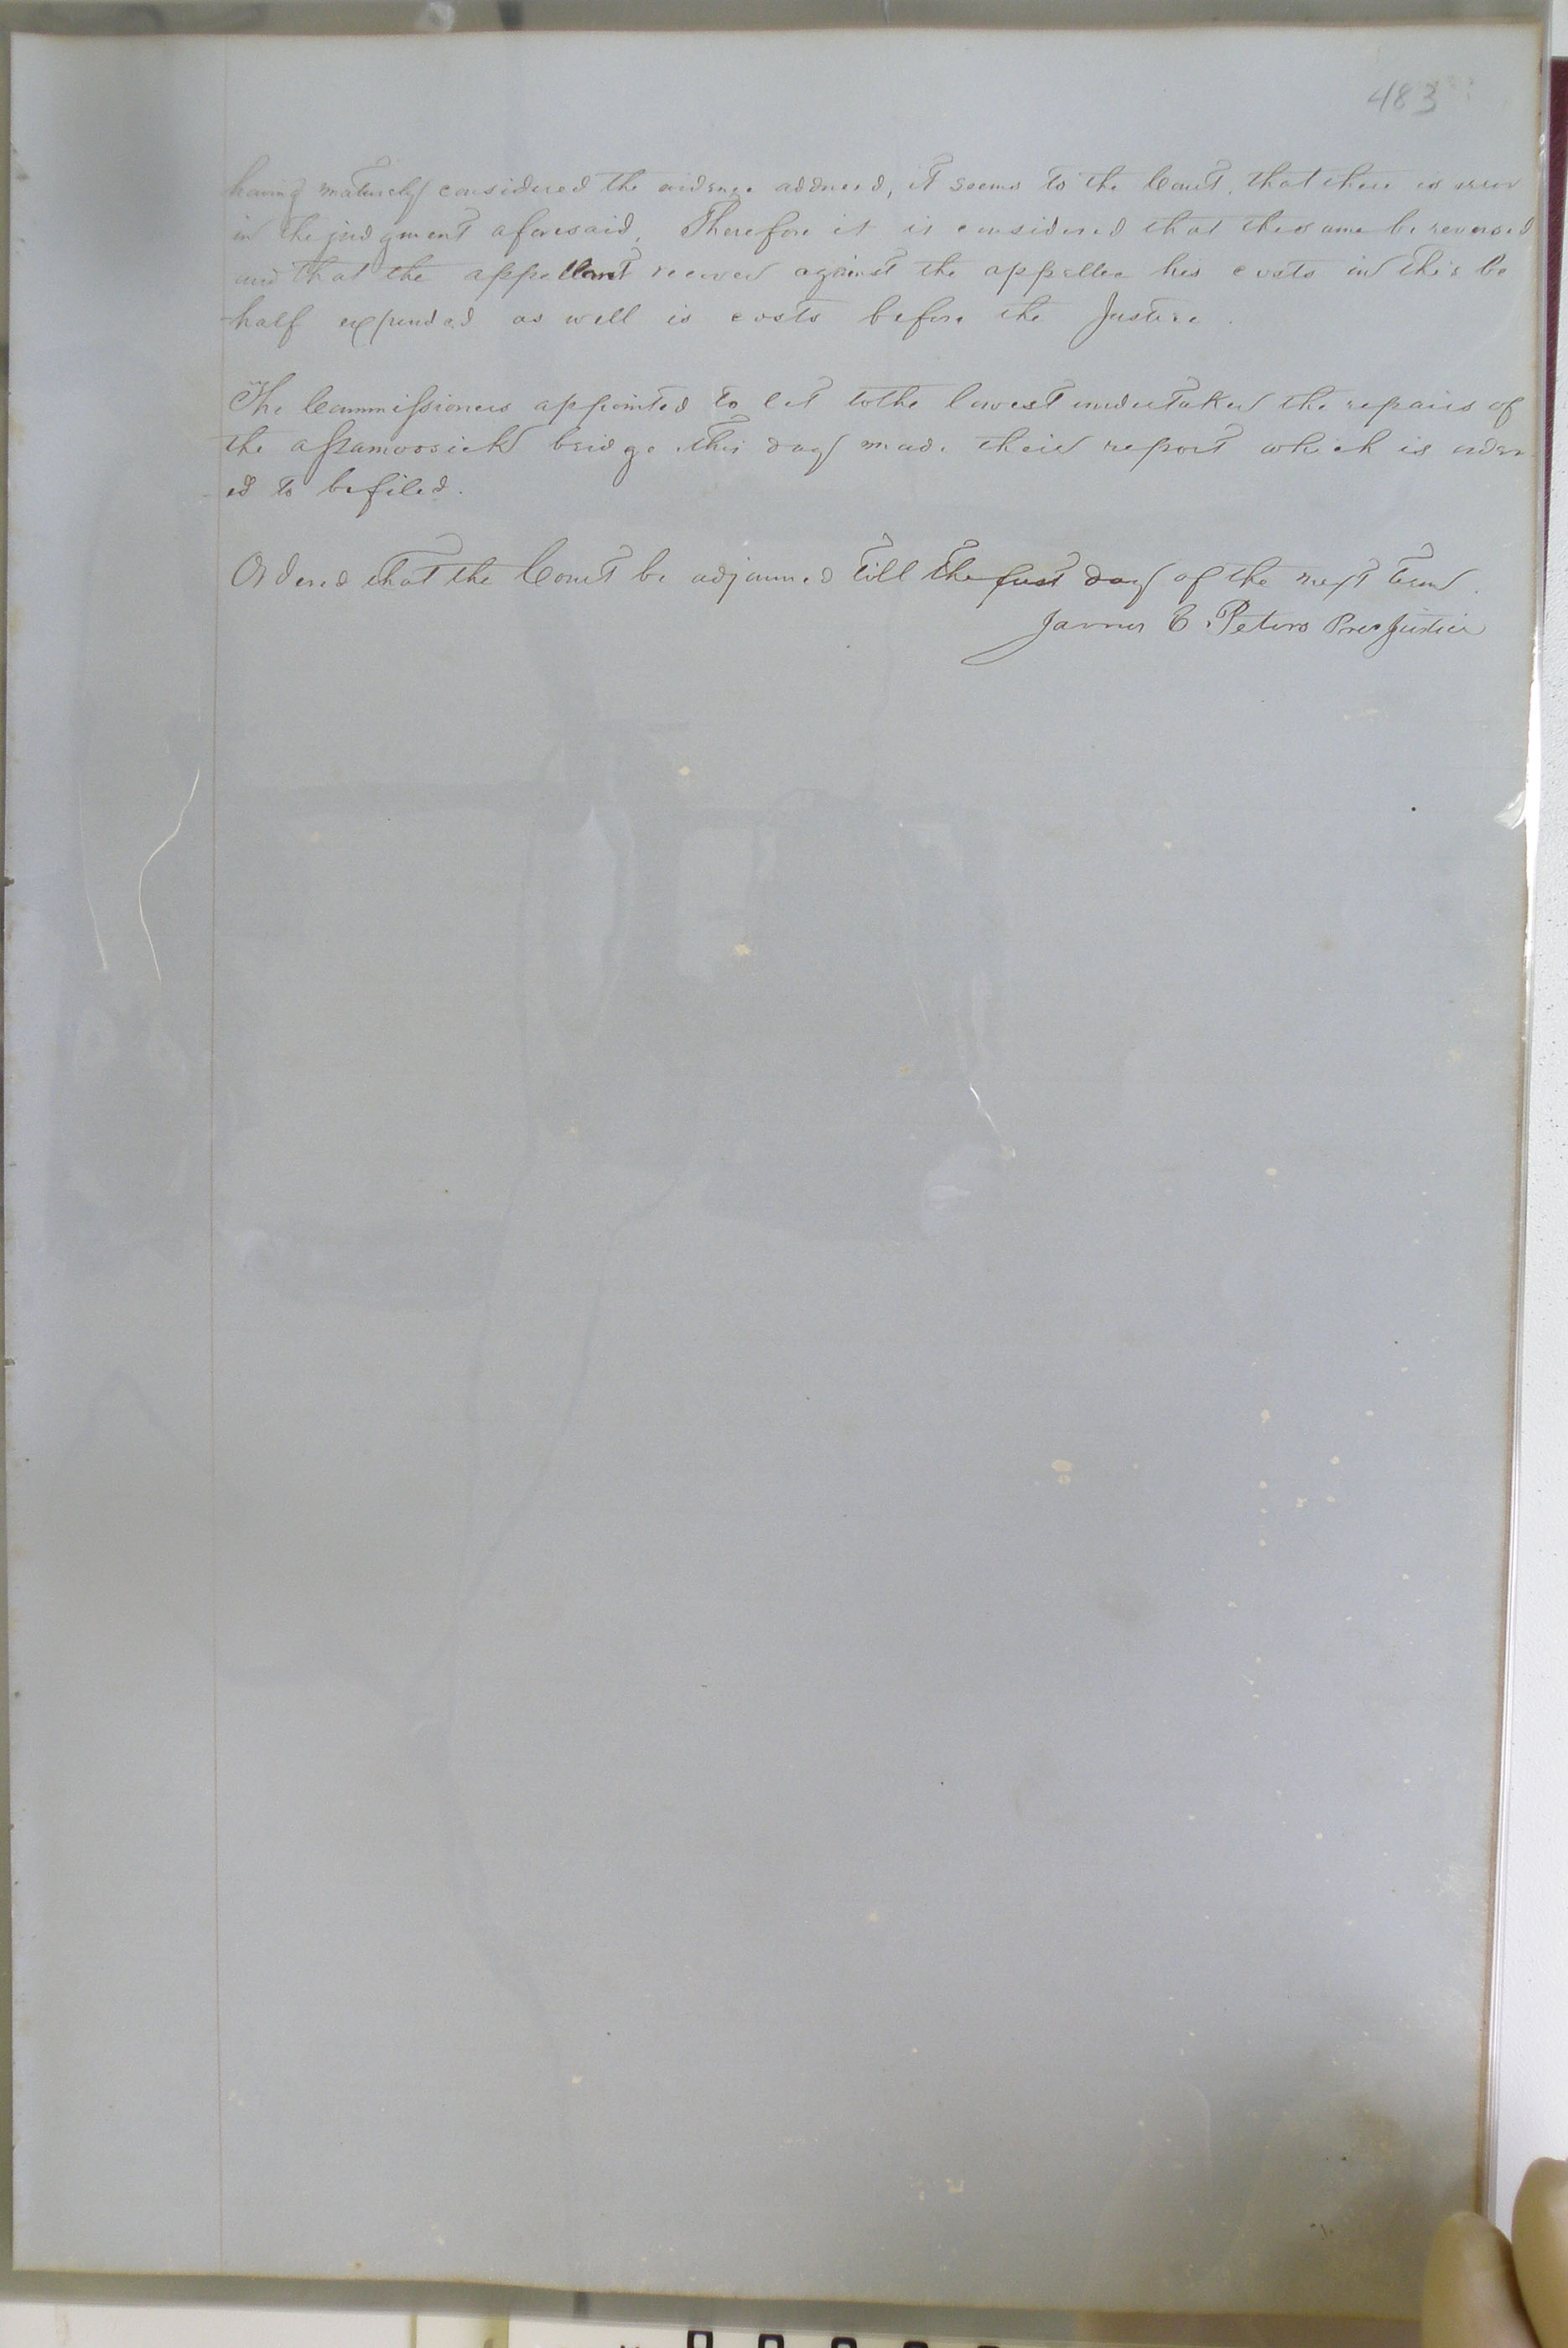 483
having maturely considered the evidence adduced, it seems to the Court, that there is error
in the judgment aforesaid, Therefore it is considered that the same be reversed
and that the appellant recover against the appellee his costs in this be
half expended as well is costs before the Justice.
The Commissioners appointed to let to the lowest undertaker the repairs of
the assamoosick bridge this day made their report which is order
ed to be filed.
Ordered that the Court be adjourned till the first day of the next term.
James C Peters Pres Justice